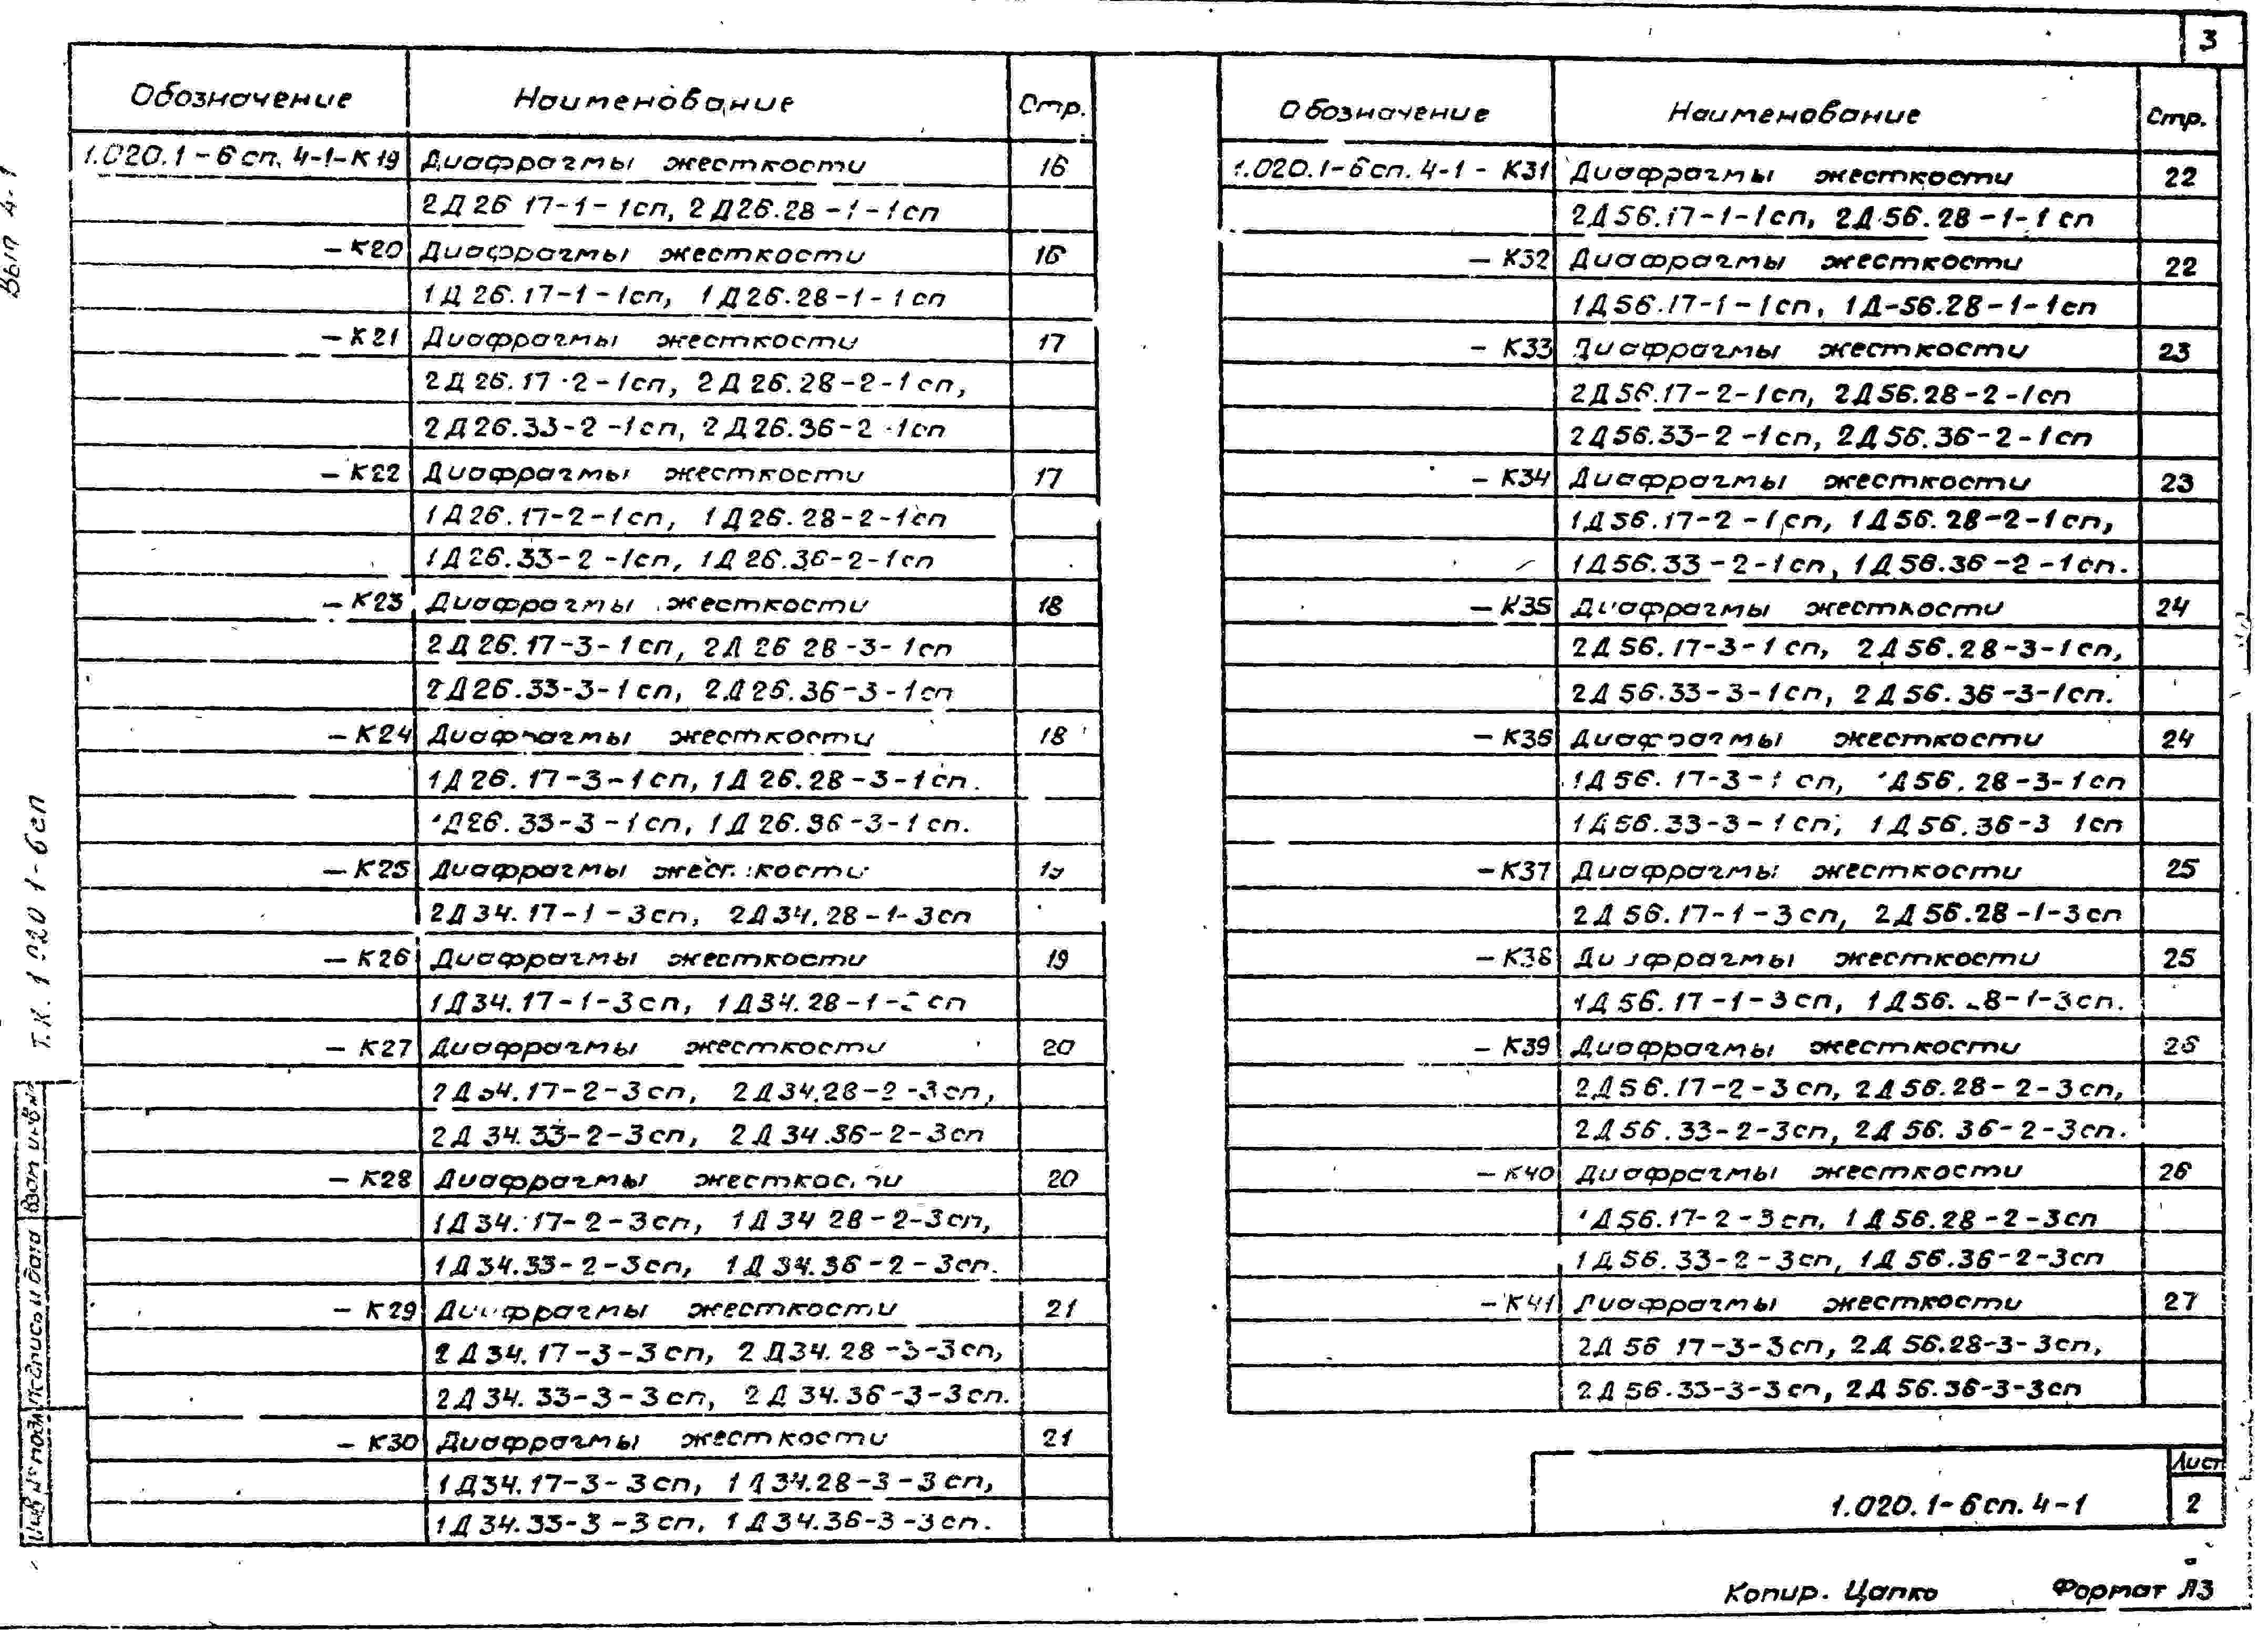 3
Обозначение Наименование Стр.
1.020.1-6сп. 4-1-К19 Диафрагмы жесткости 16
2Д26 17-1-1сп, 2Д26.28-1-1сп
-К20 Диафрагмы жесткости 16
1Д26.17-1-1сп, 1Д26.28-1-1сп
-К21 Диафрагмы жесткости 17
2Д26.17-2-1сп, 2Д26.28-2-1сп,
2Д26.33-2-1сп, 2Д26.36-2-1сп
-К22 Диафрагмы жесткости 17
1Д26.17-2-1сп, 1Д26.28-2-1сп
1Д26.33-2-1сп, 1Д26.36-2-1сп
-К23 Диафрагмы жесткости 18
2Д26.17-3-1сп, 2Д26 28-3-1сп
2Д26.33-3-1сп, 2Д26.36-3-1сп
-К24 Диафрагмы жесткости 18
1Д26.17-3-1сп, 1Д26.28-3-1сп.
1Д26.33-3-1сп, 1Д26.36-3-1сп.
-К25 Диафрагмы жесткости 19
2Д34.17-1-3сп, 2Д34.28-1-3сп
-К26 Диафрагмы жесткости 19
1Д34.17-1-3сп, 1Д34.28-1-3сп
-К27 Диафрагмы жесткости 20
2Д34.17-2-3сп, 2Д34.28-2-3сп,
2Д34.33-2-3сп, 2Д34.36-2-3сп
-К28 Диафрагмы жесткости 20
1Д34.17-2-3сп, 1Д34 28-2-3сп,
1Д34.33-2-3сп, 1Д34.36-2-3сп.
-К29 Диафрагмы жесткости 21
2Д34.17-3-3сп, 2Д34.28-3-3сп,
2Д34.33-3-3сп, 2Д34.36-3-3сп.
-К30 Диафрагмы жесткости 21
1Д34.17-3-3сп, 1Д34.28-3-3сп,
1Д34.33-3-3сп, 1Д34.36-3-3сп.
Обозначение Наименование Стр.
1.020.1-6сп.4-1-К31 Диафрагмы жесткости 22
2Д56.17-1-1сп, 2Д56.28-1-1сп
-К32 Диафрагмы жесткости 22
1Д56.17-1-1сп, 1Д-56.28-1-1сп
-К33 Диафрагмы жесткости 23
2Д56.17-2-1сп, 2Д56.28-2-1сп
2Д56.33-2-1сп, 2Д56.36-2-1сп
-К34 Диафрагмы жесткости 23
1Д56.17-2-1сп, 1Д56.28-2-1сп,
1Д56.33-2-1сп, 1Д56.36-2-1сп.
-К35 Диафрагмы жесткости 24
2Д56.17-3-1сп, 2Д56.28-3-1сп,
2Д56.33-3-1сп, 2Д56.36-3-1сп.
-К36 Диафрагмы жесткости 24
1Д56.17-3-1сп, 1Д56.28-3-1сп
1Д56.33-3-1сп, 1Д56.36-3 1сп
-К37 Диафрагмы жесткости 25
2Д56.17-1-3сп, 2Д56.28-1-3сп
-К38 Диафрагмы жесткости 25
1Д56.17-1-3сп, 1Д56.28-1-3сп.
-К39 Диафрагмы жесткости 26
2Д56.17-2-3сп, 2Д56.28-2-3сп,
2Д56.33-2-3сп, 2Д56.36-2-3сп.
-К40 Диафрагмы жесткости 26
1Д56.17-2-3сп, 1Д56.28-2-3сп
1Д56.33-2-3сп, 1Д56.36-2-3сп
-К41 Диафрагмы жесткости 27
2Д56 17-3-3сп, 2Д56.28-3-3сп,
2Д56.33-3-3сп, 2Д56.36-3-3сп
1.020.1-6сп.4-1
Лист
2
Копир. Цапко Формат А3
Вып 4-1
Т.К. 1 020 1-6сп
Взам инв №
Подпись и дата
Инв № подл